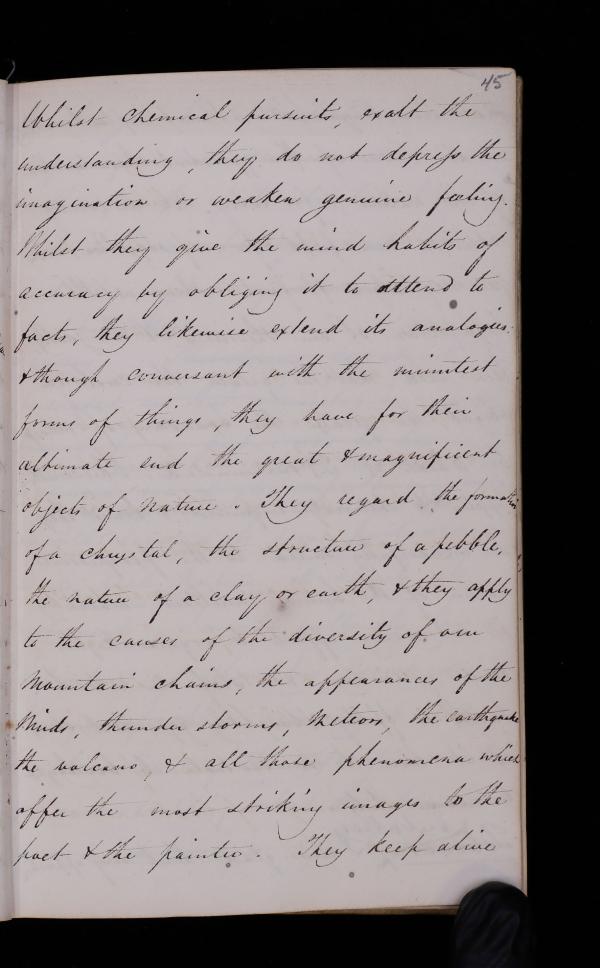 45
Whilst chemical pursuits, exalt the
understanding, they do not depress the
imagination or weaken genuine feeling.
Whilst they give the mind habits of
accuracy by obliging it to attend to
facts, they likewise extend its analogies:
& though conversant with the minutest
forms of things, they have for their
ultimate end the great & magnificent
objects of Nature. They regard the formation
of a chrystal, the structure of a pebble,
the nature of a clay or earth, & they apply
to the causes of the diversity of our
Mountain chains, the appearances of the
Winds, thunder storms, Meteors, the earthquake
the volcano, & all those phenomena which
offer the most striking images to the
poet & the painter. They keep alive